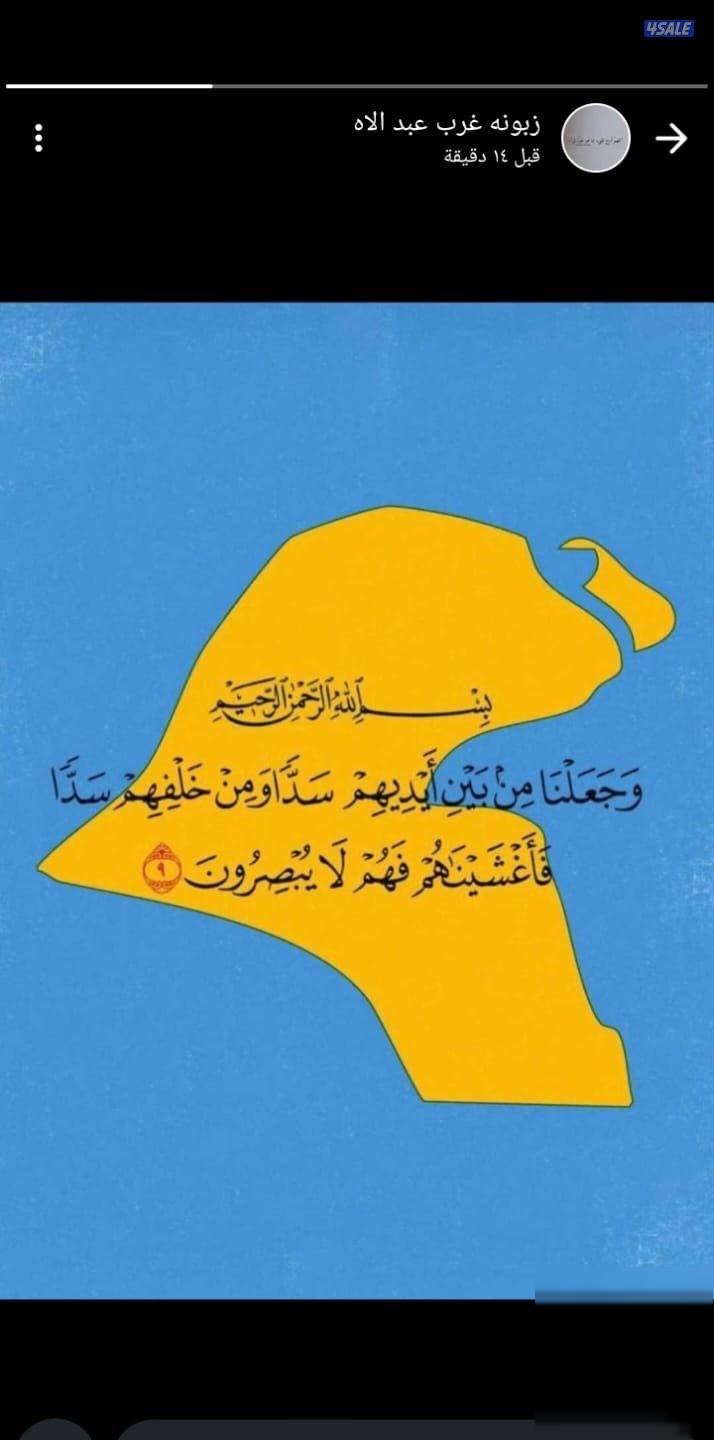 4SALE
زبونه غرب عبد الاه
قبل ١٤ دقيقة
بِسْمِ ٱللَّهِ ٱلرَّحْمَٰنِ ٱلرَّحِيمِ
وَجَعَلْنَا مِنْ بَيْنِ أَيْدِيهِمْ سَدًّا وَمِنْ خَلْفِهِمْ سَدًّا
فَأَغْشَيْنَاهُمْ فَهُمْ لَا يُبْصِرُونَ ٩